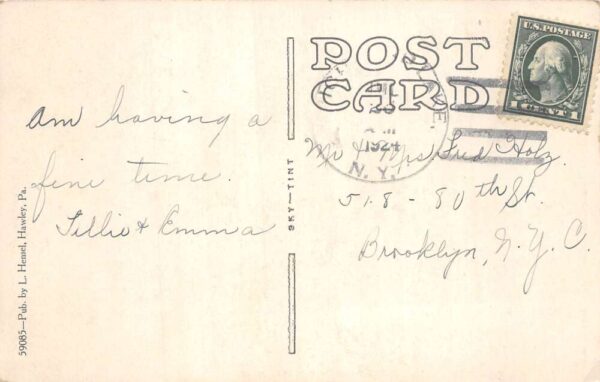 POST CARD
U.S. POSTAGE
1 CENT 1
1924
N.Y.
am having a
fine time.
Tillie & Emma
SKY-TINT
59085—Pub. by L. Hensel, Hawley, Pa.
Mr & Mrs Fred Holz.
518 - 80th St.
Brooklyn, N.Y.C.